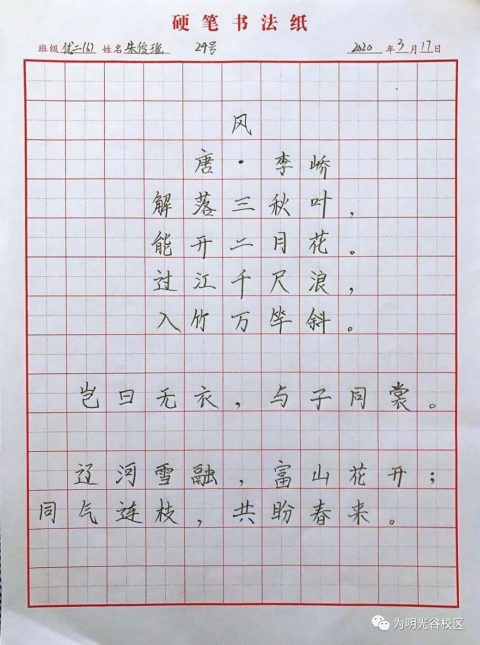 硬笔书法纸
班级 优二(6) 姓名 朱俊瑶 29号 2020 年 3 月 17 日
风
唐·李峤
解落三秋叶，
能开二月花。
过江千尺浪，
入竹万竿斜。
岂曰无衣，与子同裳。
辽河雪融，富山花开；
同气连枝，共盼春来。
为明光谷校区